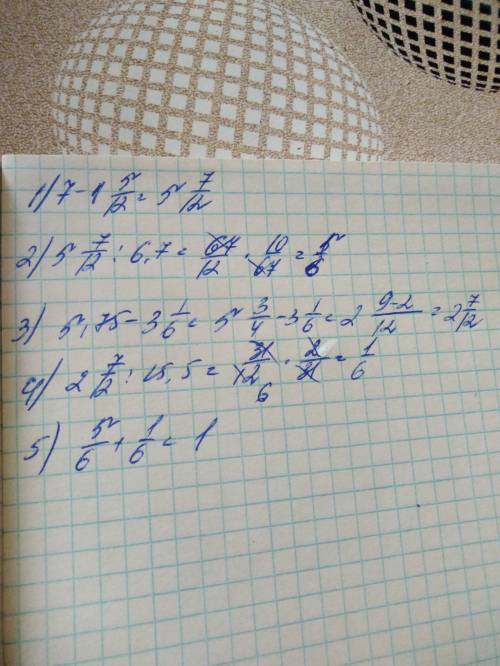 1) 7 - 1 5/12 = 5 7/12
2) 5 7/12 : 6,7 = 67/12 · 10/67 = 5/6
3) 5,75 - 3 1/6 = 5 3/4 - 3 1/6 = 2 9-2/12 = 2 7/12
4) 2 7/12 : 15,5 = 31/12 · 2/31 = 1/6
6
5) 5/6 + 1/6 = 1